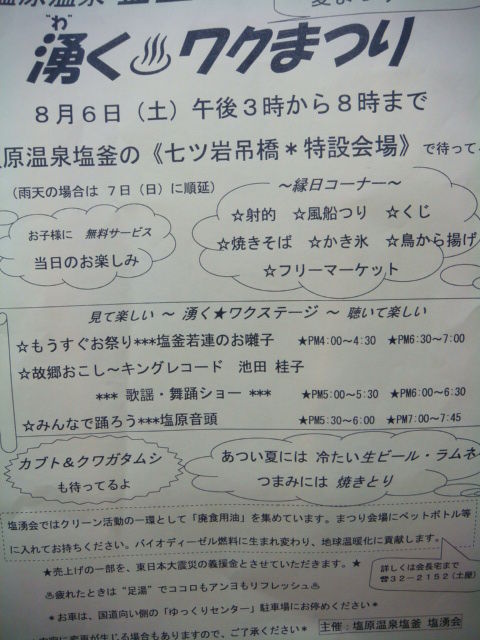 塩原温泉
"わ"
湧く♨ワクまつり
8月6日（土）午後3時から8時まで
原温泉塩釜の《七ツ岩吊橋＊特設会場》で待って
（雨天の場合は 7日（日）に順延）
～縁日コーナー～
☆射的 ☆風船つり ☆くじ
☆焼きそば ☆かき氷 ☆鳥から揚げ
☆フリーマーケット
お子様に 無料サービス
当日のお楽しみ
見て楽しい ～ 湧く★ワクステージ ～ 聴いて楽しい
☆もうすぐお祭り***塩釜若連のお囃子 ★PM4:00～4:30 ★PM6:30～7:00
☆故郷おこし～キングレコード 池田 桂子
*** 歌謡・舞踊ショー *** ★PM5:00～5:30 ★PM6:00～6:30
☆みんなで踊ろう***塩原音頭 ★PM5:30～6:00 ★PM7:00～7:45
カブト＆クワガタムシ
も待ってるよ
あつい夏には 冷たい生ビール・ラムネ
つまみには 焼きとり
塩湧会ではクリーン活動の一環として「廃食用油」を集めています。まつり会場にペットボトル等
に入れてお持ちください。バイオディーゼル燃料に生まれ変わり、地球温暖化に貢献します。
★売上げの一部を、東日本大震災の義援金とさせていただきます。★
♨疲れたときは "足湯" でココロもアンヨもリフレッシュ♨
＊お車は、国道向い側の「ゆっくりセンター」駐車場にお停めください＊
詳しくは会長宅まで
☎32-2152（土屋）
に変更が生じる場合もありますので、ご了承ください＊
主催：塩原温泉塩釜 塩湧会